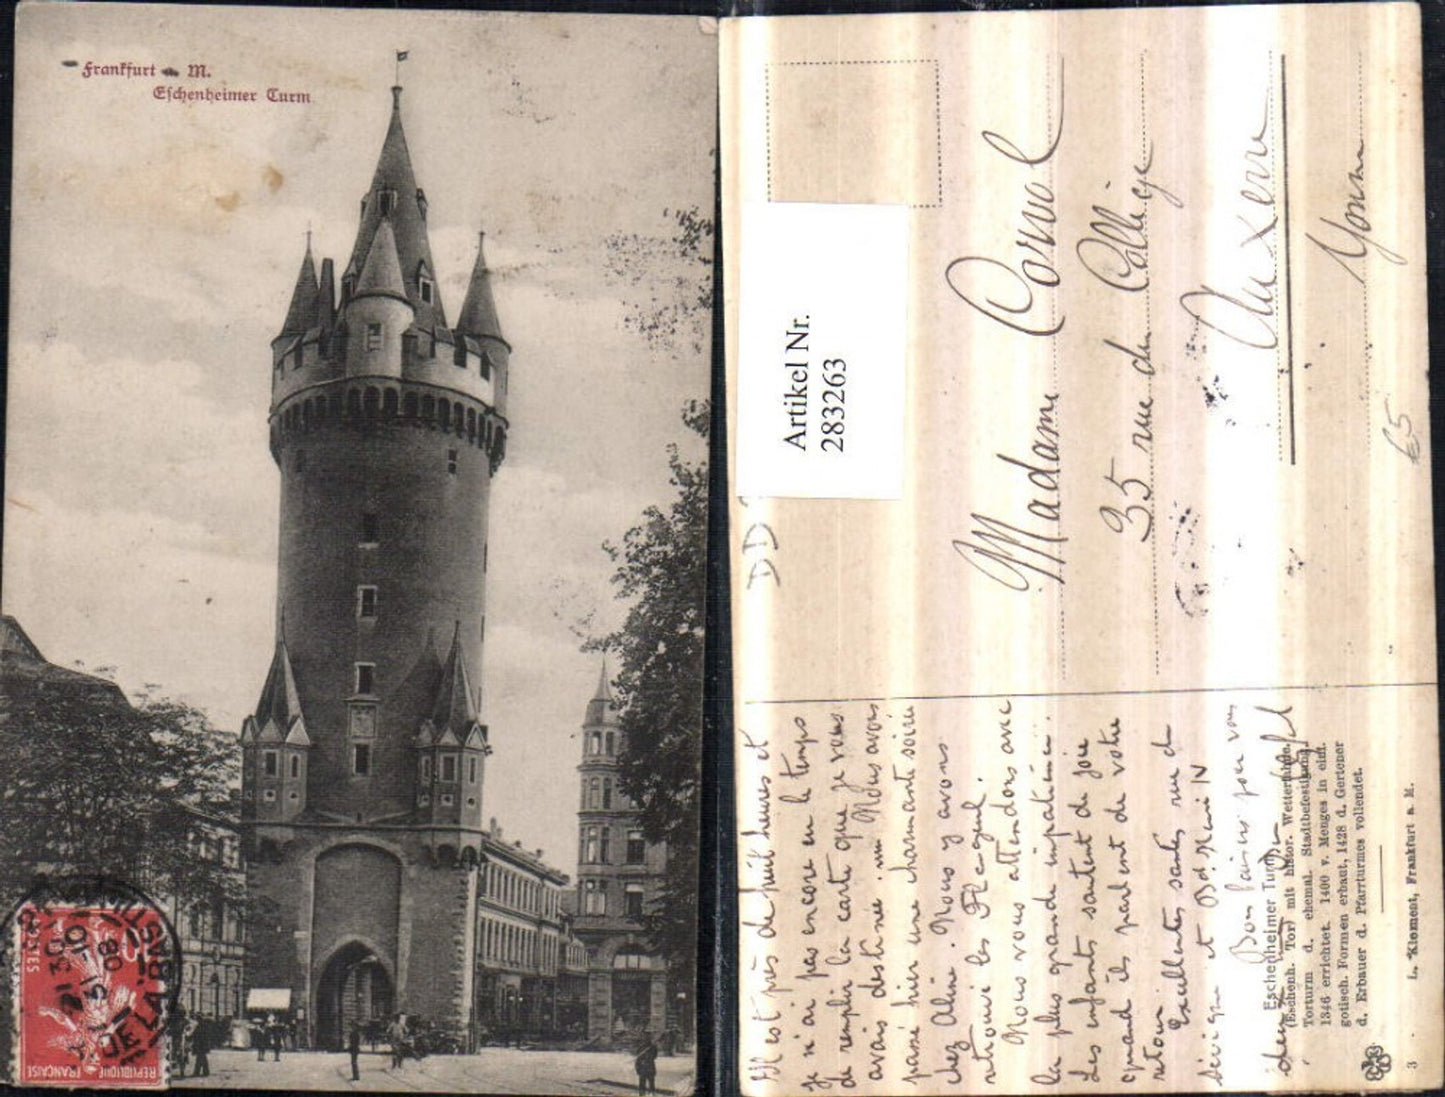 Frankfurt a. M.
Eschenheimer Turm
REPUBLIQUE FRANÇAISE
POSTES
10
Artikel Nr.
283263
DD
Madame Cornol
35 rue du Collège
Auxerre
Yonne
€5
Il est près de huit heures et
je n'ai pas encore eu le temps
de remplir la carte que je vous
avais destinée. Nous avons
passé hier une charmante soirée
chez Aline. Nous y avons
retrouvé les
Nous vous attendons avec
la plus grande impatience.
Les enfants sautent de joie
quand ils parlent de votre
retour.
Excellentes santés rue de
Sévigné et Bd Henri IV
Bons baisers pour vous
Eschenheimer Turm
(Eschenh. Tor) mit histor. Wetterfahne.
Torturm d. ehemal. Stadtbefestigung
1346 errichtet. 1400 v. Menges in einf.
gotisch. Formen erbaut, 1428 d. Gertener
d. Erbauer d. Pfarrturmes vollendet.
3
L. Klement, Frankfurt a. M.